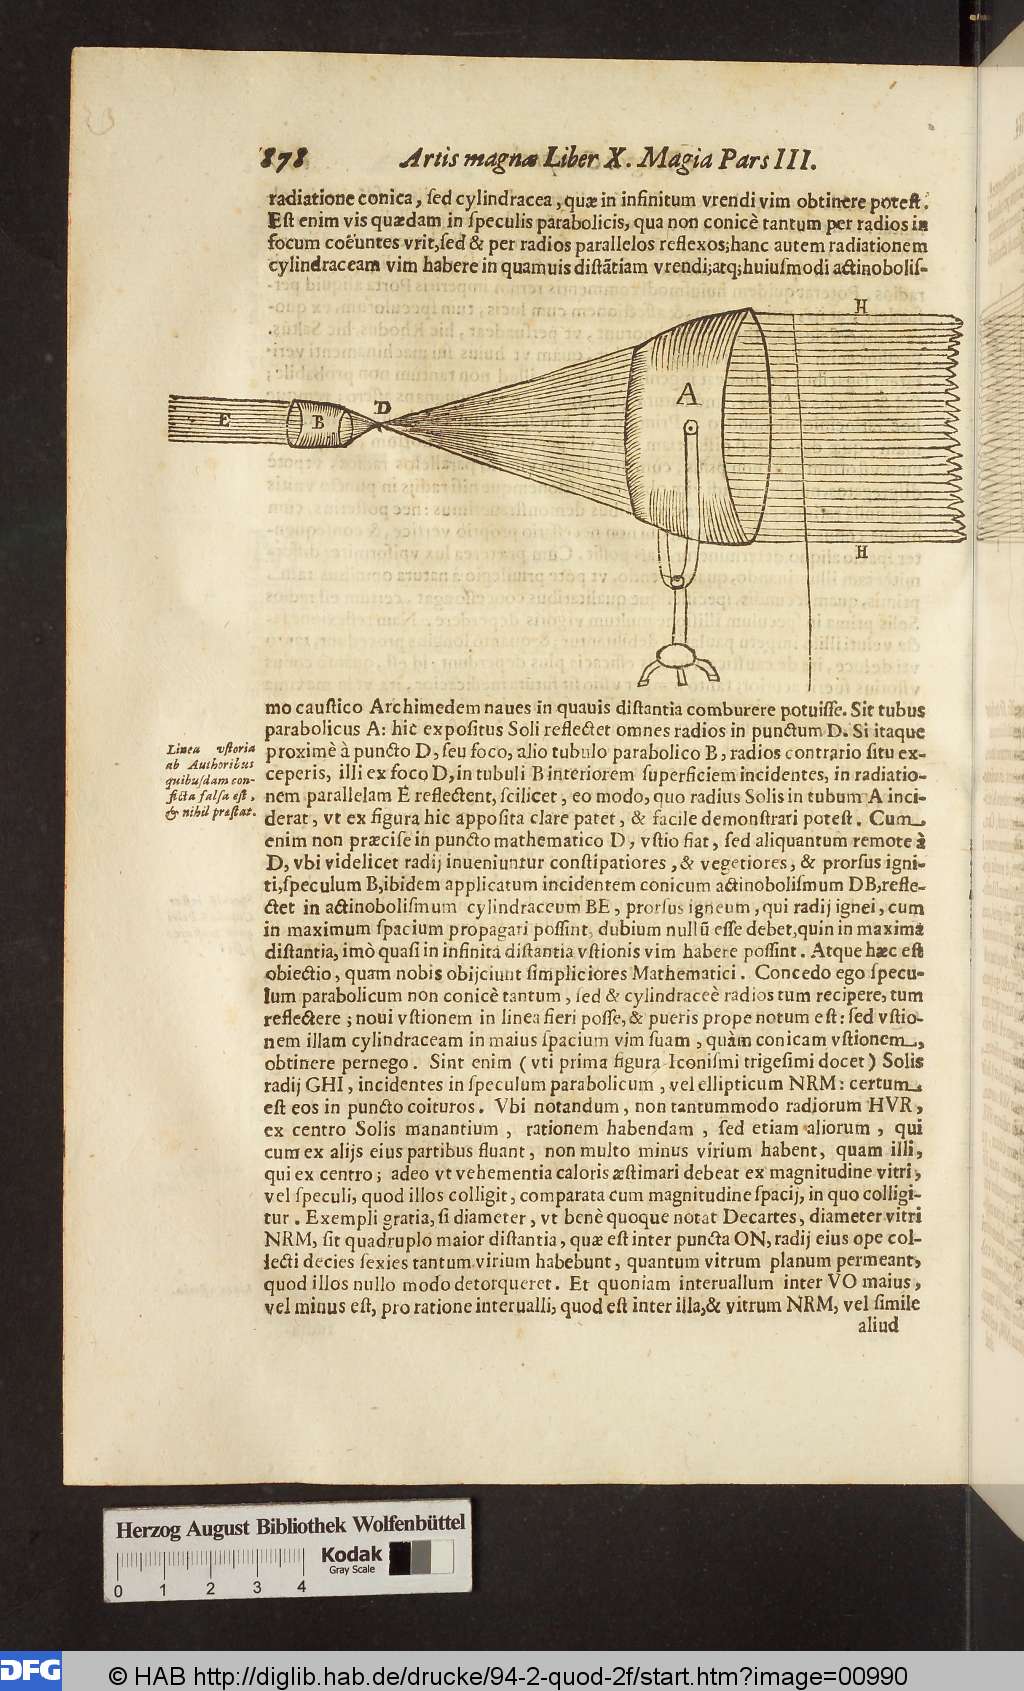 878 Artis magnæ Liber X. Magia Pars III.
radiatione conica, ſed cylindracea, quæ in infinitum vrendi vim obtinere poteſt.
Eſt enim vis quædam in ſpeculis parabolicis, qua non conicè tantum per radios in
focum coëuntes vrit, ſed & per radios parallelos reflexos; hanc autem radiationem
cylindraceam vim habere in quamuis diſtãtiam vrendi; atq; huiuſmodi actinoboliſ-
H
A
D
E
B
H
mo cauſtico Archimedem naues in quauis diſtantia comburere potuiſſe. Sit tubus
parabolicus A: hic expoſitus Soli reflectet omnes radios in punctum D. Si itaque
Linea vſtoria
ab Authoribus
quibuſdam con-
ficta falſa eſt,
& nihil præſtat.
proximè à puncto D, ſeu foco, alio tubulo parabolico B, radios contrario ſitu ex-
ceperis, illi ex foco D, in tubuli B interiorem ſuperficiem incidentes, in radiatio-
nem parallelam E reflectent, ſcilicet, eo modo, quo radius Solis in tubum A inci-
derat, vt ex figura hic appoſita clare patet, & facile demonſtrari poteſt. Cum
enim non præciſe in puncto mathematico D, vſtio fiat, ſed aliquantum remote à
D, vbi videlicet radij inueniuntur conſtipatiores, & vegetiores, & prorſus igni-
ti, ſpeculum B, ibidem applicatum incidentem conicum actinoboliſmum DB, refle-
ctet in actinoboliſmum cylindraceum BE, prorſus igneum, qui radij ignei, cum
in maximum ſpacium propagari poſſint, dubium nullũ eſſe debet, quin in maxima
diſtantia, imò quaſi in infinita diſtantia vſtionis vim habere poſſint. Atque hæc eſt
obiectio, quam nobis obijciunt ſimpliciores Mathematici. Concedo ego ſpecu-
lum parabolicum non conicè tantum, ſed & cylindraceè radios tum recipere, tum
reflectere; noui vſtionem in linea fieri poſſe, & pueris prope notum eſt: ſed vſtio-
nem illam cylindraceam in maius ſpacium vim ſuam, quàm conicam vſtionem,
obtinere pernego. Sint enim (vti prima figura Iconiſmi trigeſimi docet) Solis
radij GHI, incidentes in ſpeculum parabolicum, vel ellipticum NRM: certum
eſt eos in puncto coituros. Vbi notandum, non tantummodo radiorum HVR,
ex centro Solis manantium, rationem habendam, ſed etiam aliorum, qui
cum ex alijs eius partibus fluant, non multo minus virium habent, quam illi,
qui ex centro; adeo vt vehementia caloris æſtimari debeat ex magnitudine vitri,
vel ſpeculi, quod illos colligit, comparata cum magnitudine ſpacij, in quo colligi-
tur. Exempli gratia, ſi diameter, vt benè quoque notat Decartes, diameter vitri
NRM, ſit quadruplo maior diſtantia, quæ eſt inter puncta ON, radij eius ope col-
lecti decies ſexies tantum virium habebunt, quantum vitrum planum permeant,
quod illos nullo modo detorqueret. Et quoniam interuallum inter VO maius,
vel minus eſt, pro ratione interualli, quod eſt inter illa, & vitrum NRM, vel ſimile
aliud
Herzog August Bibliothek Wolfenbüttel
Kodak
Gray Scale
0 1 2 3 4
DFG © HAB http://diglib.hab.de/drucke/94-2-quod-2f/start.htm?image=00990